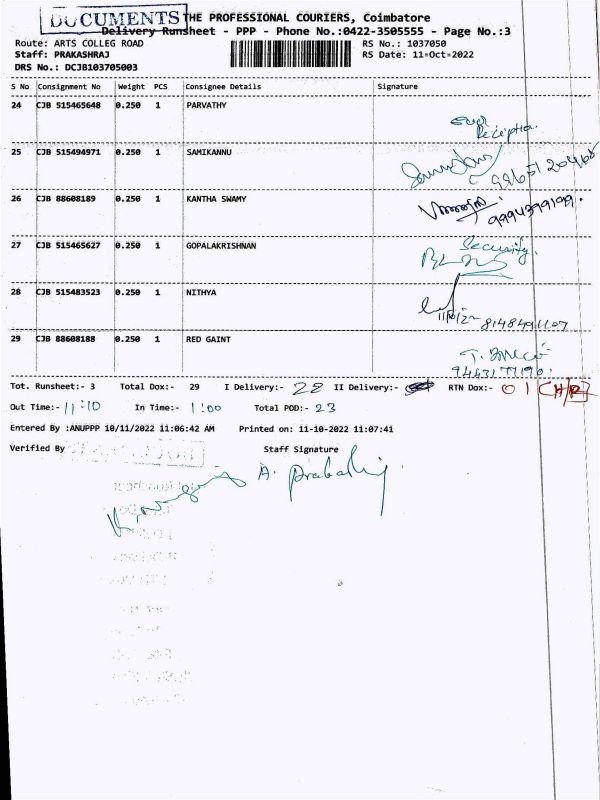 DOCUMENTS
THE PROFESSIONAL COURIERS, Coimbatore
Delivery Runsheet - PPP - Phone No.:0422-3505555 - Page No.:3
Route: ARTS COLLEG ROAD
RS No.: 1037050
Staff: PRAKASHRAJ
RS Date: 11-Oct-2022
DRS No.: DCJB103705003
S No Consignment No Weight PCS Consignee Details Signature
24 CJB 515465648 0.250 1 PARVATHY
25 CJB 515494971 0.250 1 SAMIKANNU
26 CJB 88608189 0.250 1 KANTHA SWAMY
9994399199.
27 CJB 515465627 0.250 1 GOPALAKRISHNAN
Security.
28 CJB 515483523 0.250 1 NITHYA
8148491107
29 CJB 88608188 0.250 1 RED GAINT
9443177190.
Tot. Runsheet:- 3 Total Dox:- 29 I Delivery:- 28 II Delivery:- RTN Dox:- 01
Out Time:- 11:10 In Time:- 1:00 Total POD:- 23
Entered By :ANUPPP 10/11/2022 11:06:42 AM Printed on: 11-10-2022 11:07:41
Verified By Staff Signature